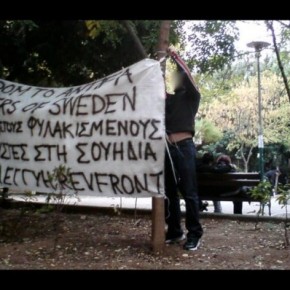 DOM TO ANTIFA
ERS OF SWEDEN
ΣΤΟΥΣ ΦΥΛΑΚΙΣΜΕΝΟΥΣ
ΣΤΗ ΣΟΥΗΔΙΑ
ΛΕΓΓΥΗ REVFRONT